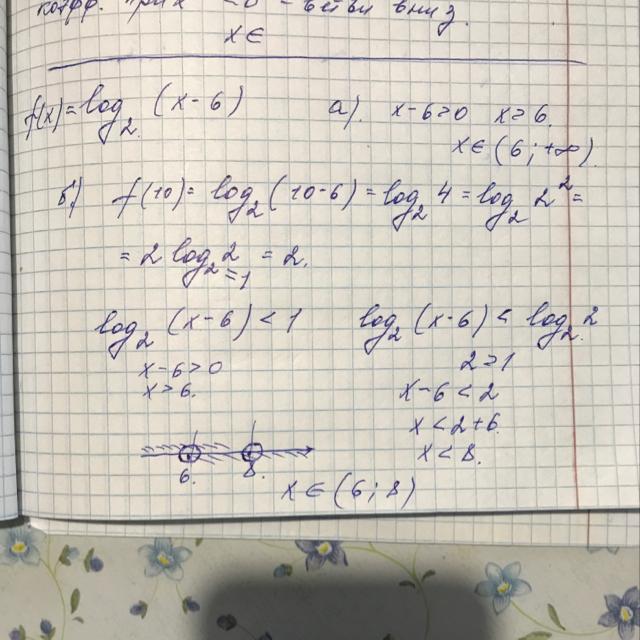 коэфф. при x < 0 - ветви вниз.
x ∈
f(x) = log₂ (x - 6) а). x - 6 > 0 x > 6.
x ∈ (6 ; +∞)
б) f(10) = log₂ (10 - 6) = log₂ 4 = log₂ 2² =
= 2 log₂ 2 = 2.
= 1
log₂ (x - 6) < 1 log₂ (x - 6) < log₂ 2
x - 6 > 0 2 > 1
x > 6. x - 6 < 2
x < 2 + 6.
x < 8.
6. 8.
x ∈ (6 ; 8)